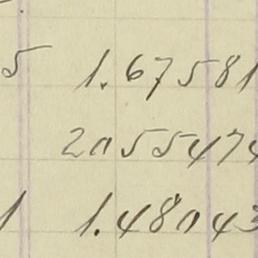 5 1.67581
2055474
1 1.48043